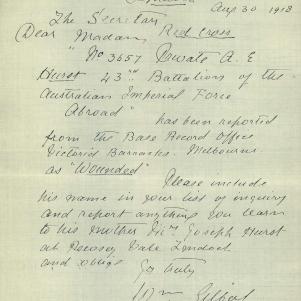 Aug 30 1918
The Secretary
Dear Madam, Red Cross
"No 3657 Private A. E
Hurst 43rd Battalions of the
Australian Imperial Force
Abroad" has been reported
from the Base Record Office
Victoria Barracks. Melbourne
as "Wounded"
Please include
his name in your list of enquiry
and report anything you learn
to his mother Mrs Joseph Hurst
at Pewsey Vale Lyndoch
and oblige
Yrs truly
Wm Gilbert